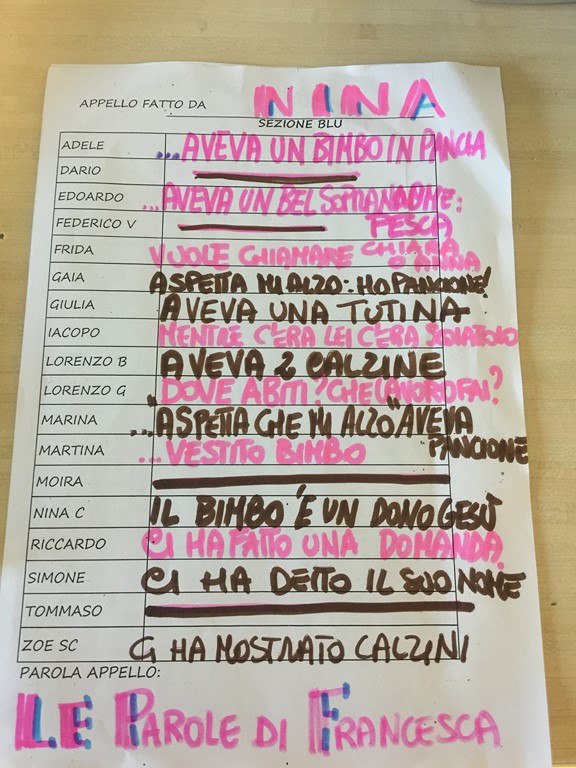 APPELLO FATTO DA NINA
SEZIONE BLU
ADELE ...AVEVA UN BIMBO IN PANCIA
DARIO
EDOARDO ...AVEVA UN BEL SOPRANNOME:
FEDERICO V PESCA
FRIDA VUOLE CHIAMARE CHIARA
O ANNA
GAIA ASPETTA MI ALZO: HO PANCIONE!
GIULIA AVEVA UNA TUTINA
IACOPO MENTRE C'ERA LEI C'ERA
LORENZO B AVEVA 2 CALZINE
LORENZO G "DOVE ABITI? CHE LAVORO FAI?
MARINA ..."ASPETTA CHE MI ALZO" AVEVA
PANCIONE
MARTINA ...VESTITO BIMBO
MOIRA
NINA C IL BIMBO È UN DONO GESÙ
RICCARDO CI HA FATTO UNA DOMANDA
SIMONE CI HA DETTO IL SUO NOME
TOMMASO
ZOE SC CI HA MOSTRATO CALZINI
PAROLA APPELLO:
LE PAROLE DI FRANCESCA